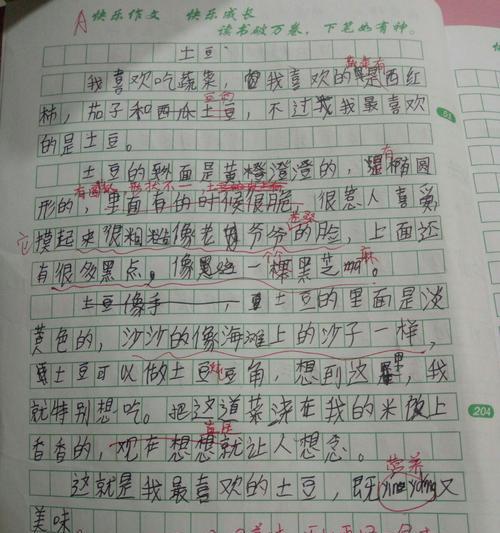 A 快乐作文 快乐成长
读书破万卷，下笔如有神。
土豆
蔬菜有
我喜欢吃蔬菜，我喜欢的是西红
豆角
柿，茄子和西瓜土豆，不过我最喜欢
的是土豆。
81
有
土豆的外面是黄橙澄澄的，是椭圆
有圆 形状不一
形的，里面有的时候很脆，很惹人喜爱，
老爷
它摸起来很粗糙像老爷爷的脸，上面还
个 麻
有很多黑点，像黑一棵黑芝ma。
土豆像手 土豆的里面是淡
黄色的，沙沙的像海滩上的沙子一样，
土豆可以做土豆豆角，想到这里，我
204
就特别想吃。把这道菜浇在我的米饭上
香香的，现在想想就让人想念。
营养
这就是我最喜欢的土豆，既ying yang又
美味